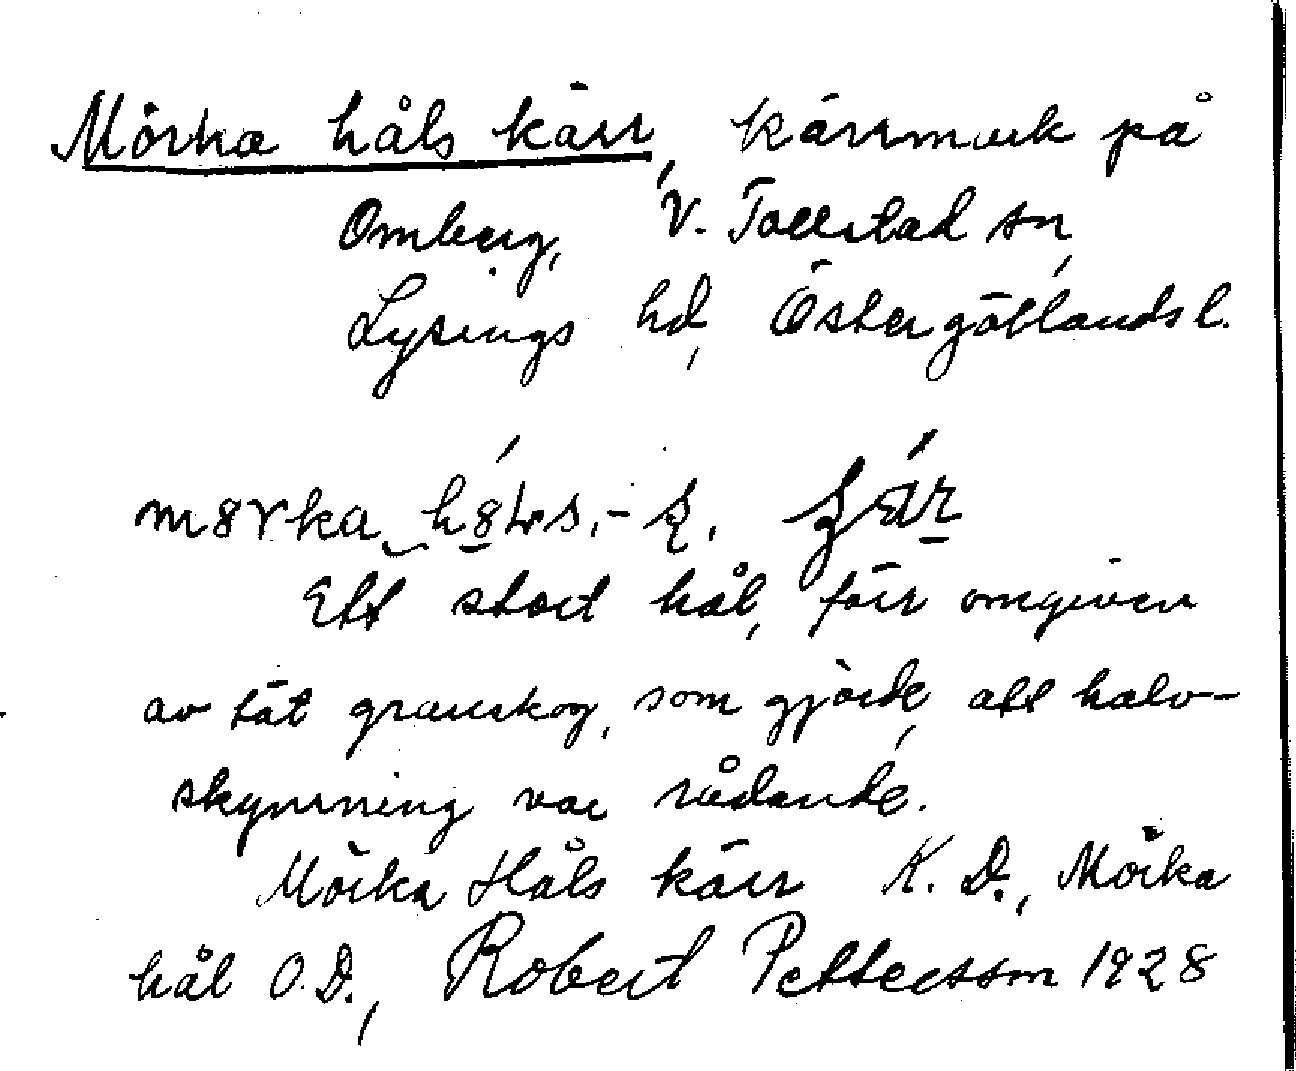 Mörka håls kärr, kärrmark på
Omberg, V. Tollstad sn,
Lysings hd, Östergötlands l.
Ett stort hål, förr omgiven
av tät granskog, som gjorde, att halv-
skymning var rådande.
Mörka Håls kärr K. D., Mörka
hål O.D., Robert Pettersson 1928